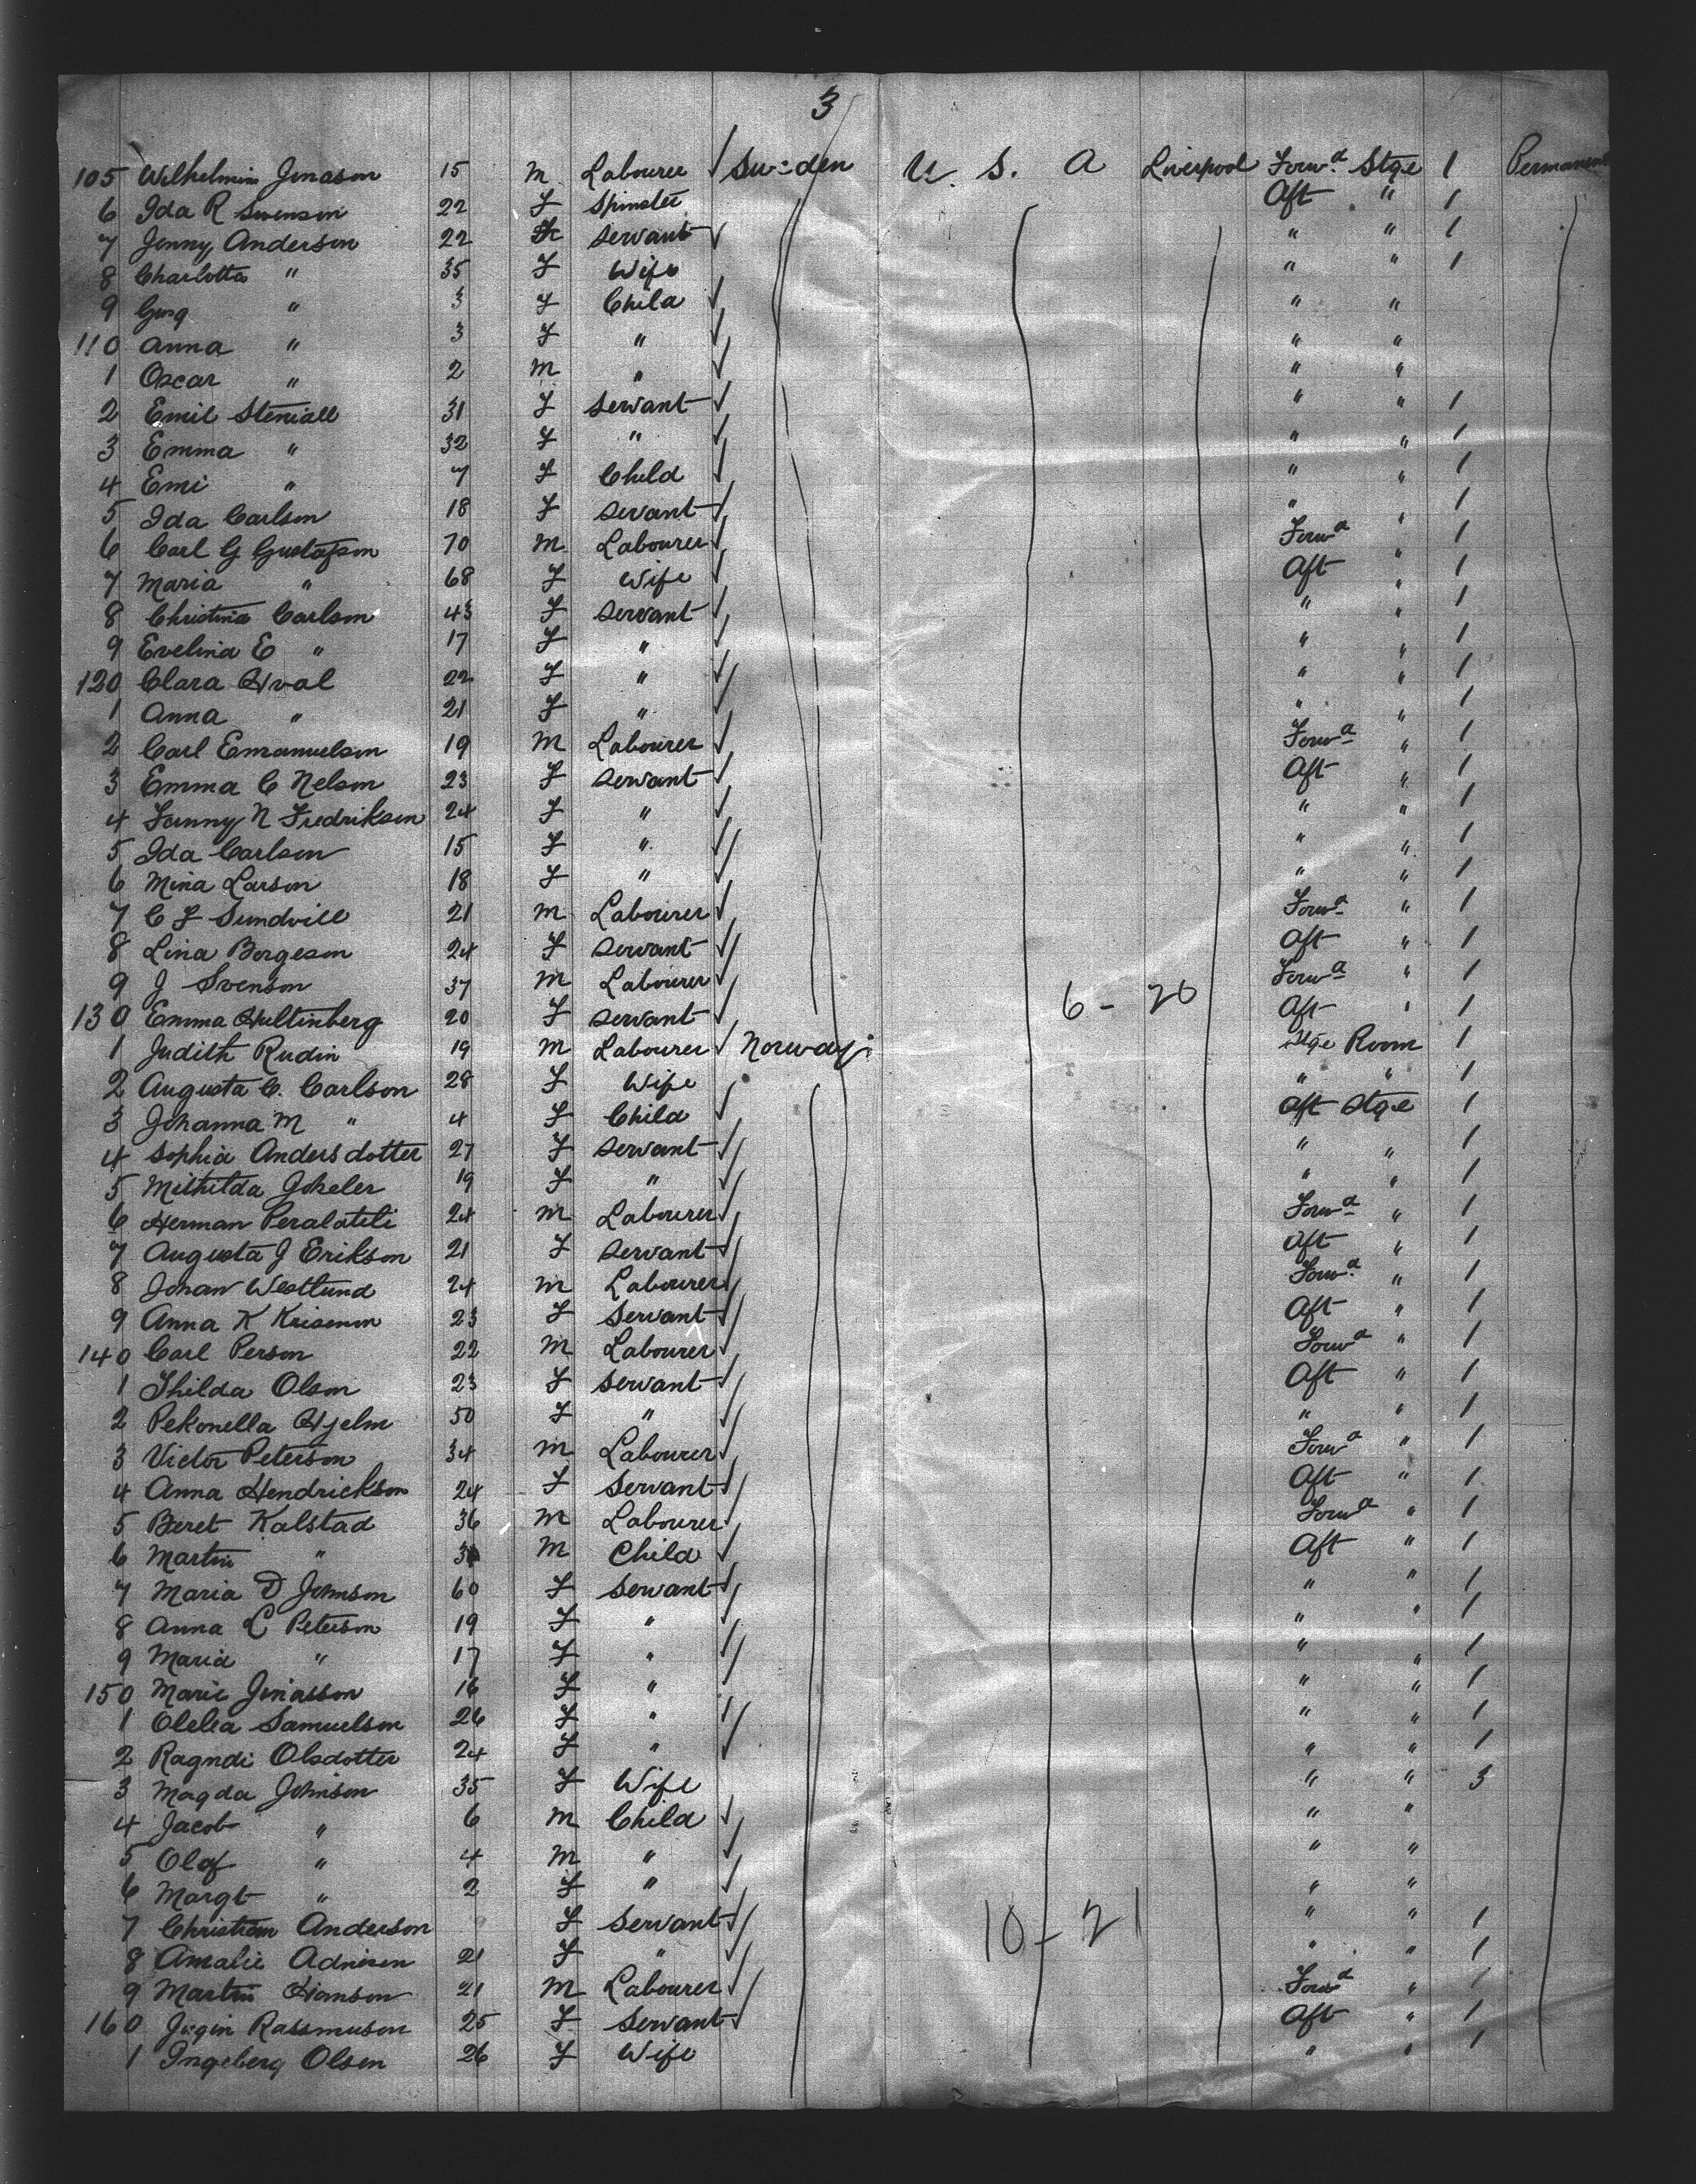 3
105 Wilhelmin Jonason 15 m Labourer Sweden U. S. A Liverpool Forwd Stge 1 Permanent
6 Ida R Swenson 22 F Spinster Aft " 1
7 Jenny Anderson 22 servant " " 1
8 Charlotta " 35 F Wife " " 1
9 " 3 F Child " "
110 Anna " 3 F " " "
1 Oscar " 2 m " " "
2 Emil Steniall 31 F servant " " 1
3 Emma " 32 F " " " 1
4 Emi " 7 F Child " " 1
5 Ida Carlson 18 F servant " " 1
6 Carl G Gustafson 70 m Labourer Forwd " 1
7 Maria " 68 F Wife Aft " 1
8 Christina Carlson 43 F servant " " 1
9 Evelina E " 17 F " " " 1
120 Clara Hval 22 F " " " 1
1 Anna " 21 F " " " 1
2 Carl Emanuelson 19 m Labourer Forwd " 1
3 Emma C Nelson 23 F servant Aft " 1
4 Fanny N Fredrikson 24 F " " " 1
5 Ida Carlson 15 F " " " 1
6 Mina Larson 18 F " " " 1
7 C F Sundvill 21 m Labourer Forwd " 1
8 Lina Borgeson 24 F servant Aft " 1
9 J Svenson 37 m Labourer Forwd " 1
130 Emma Hultinberg 20 F servant 6 - 20 Aft " 1
1 Judith Rudin 19 m Labourer Norway Stge Room 1
2 Augusta C. Carlson 28 F Wife " " 1
3 Johanna M " 4 F Child Aft Stge 1
4 Sophia Andersdotter 27 F servant " " 1
5 Mithilda Goheler 19 F " " " 1
6 Herman Peralateli 24 m Labourer Forwd " 1
7 Augusta J Erikson 21 F servant Aft " 1
8 Johan Westlund 24 m Labourer Forwd " 1
9 Anna K 23 F Servant Aft " 1
140 Carl Person 22 m Labourer Forwd " 1
1 Thilda Olson 23 F servant Aft " 1
2 Pekonella Hjelm 50 F " " " 1
3 Victor Peterson 34 m Labourer Forwd " 1
4 Anna Hendrickson 24 F Servant Aft " 1
5 Beret Kalstad 36 m Labourer Forwd " 1
6 Martin " m Child Aft " 1
7 Maria D Johnson 60 F Servant " " 1
8 Anna C Peterson 19 F " " " 1
9 Maria " 17 F " " " 1
150 Marie Jonasson 16 F " " " 1
1 Olelia Samuelson 26 F " " " 1
2 Ragndi Olsdotter 24 F " " " 1
3 Magda Johnson 35 F Wife " " 3
4 Jacob " 6 m Child " "
5 Olof " 4 m " " "
6 Margt " 2 F " " "
7 Christian Anderson F Servant 10 - 21 " " 1
8 Amalie Adnisen 21 F " " " 1
9 Martin Hanson 21 m Labourer Forwd " 1
160 Rassmuson 25 F Servant Aft " 1
1 Ingeberg Olsen 26 F Wife " " 1